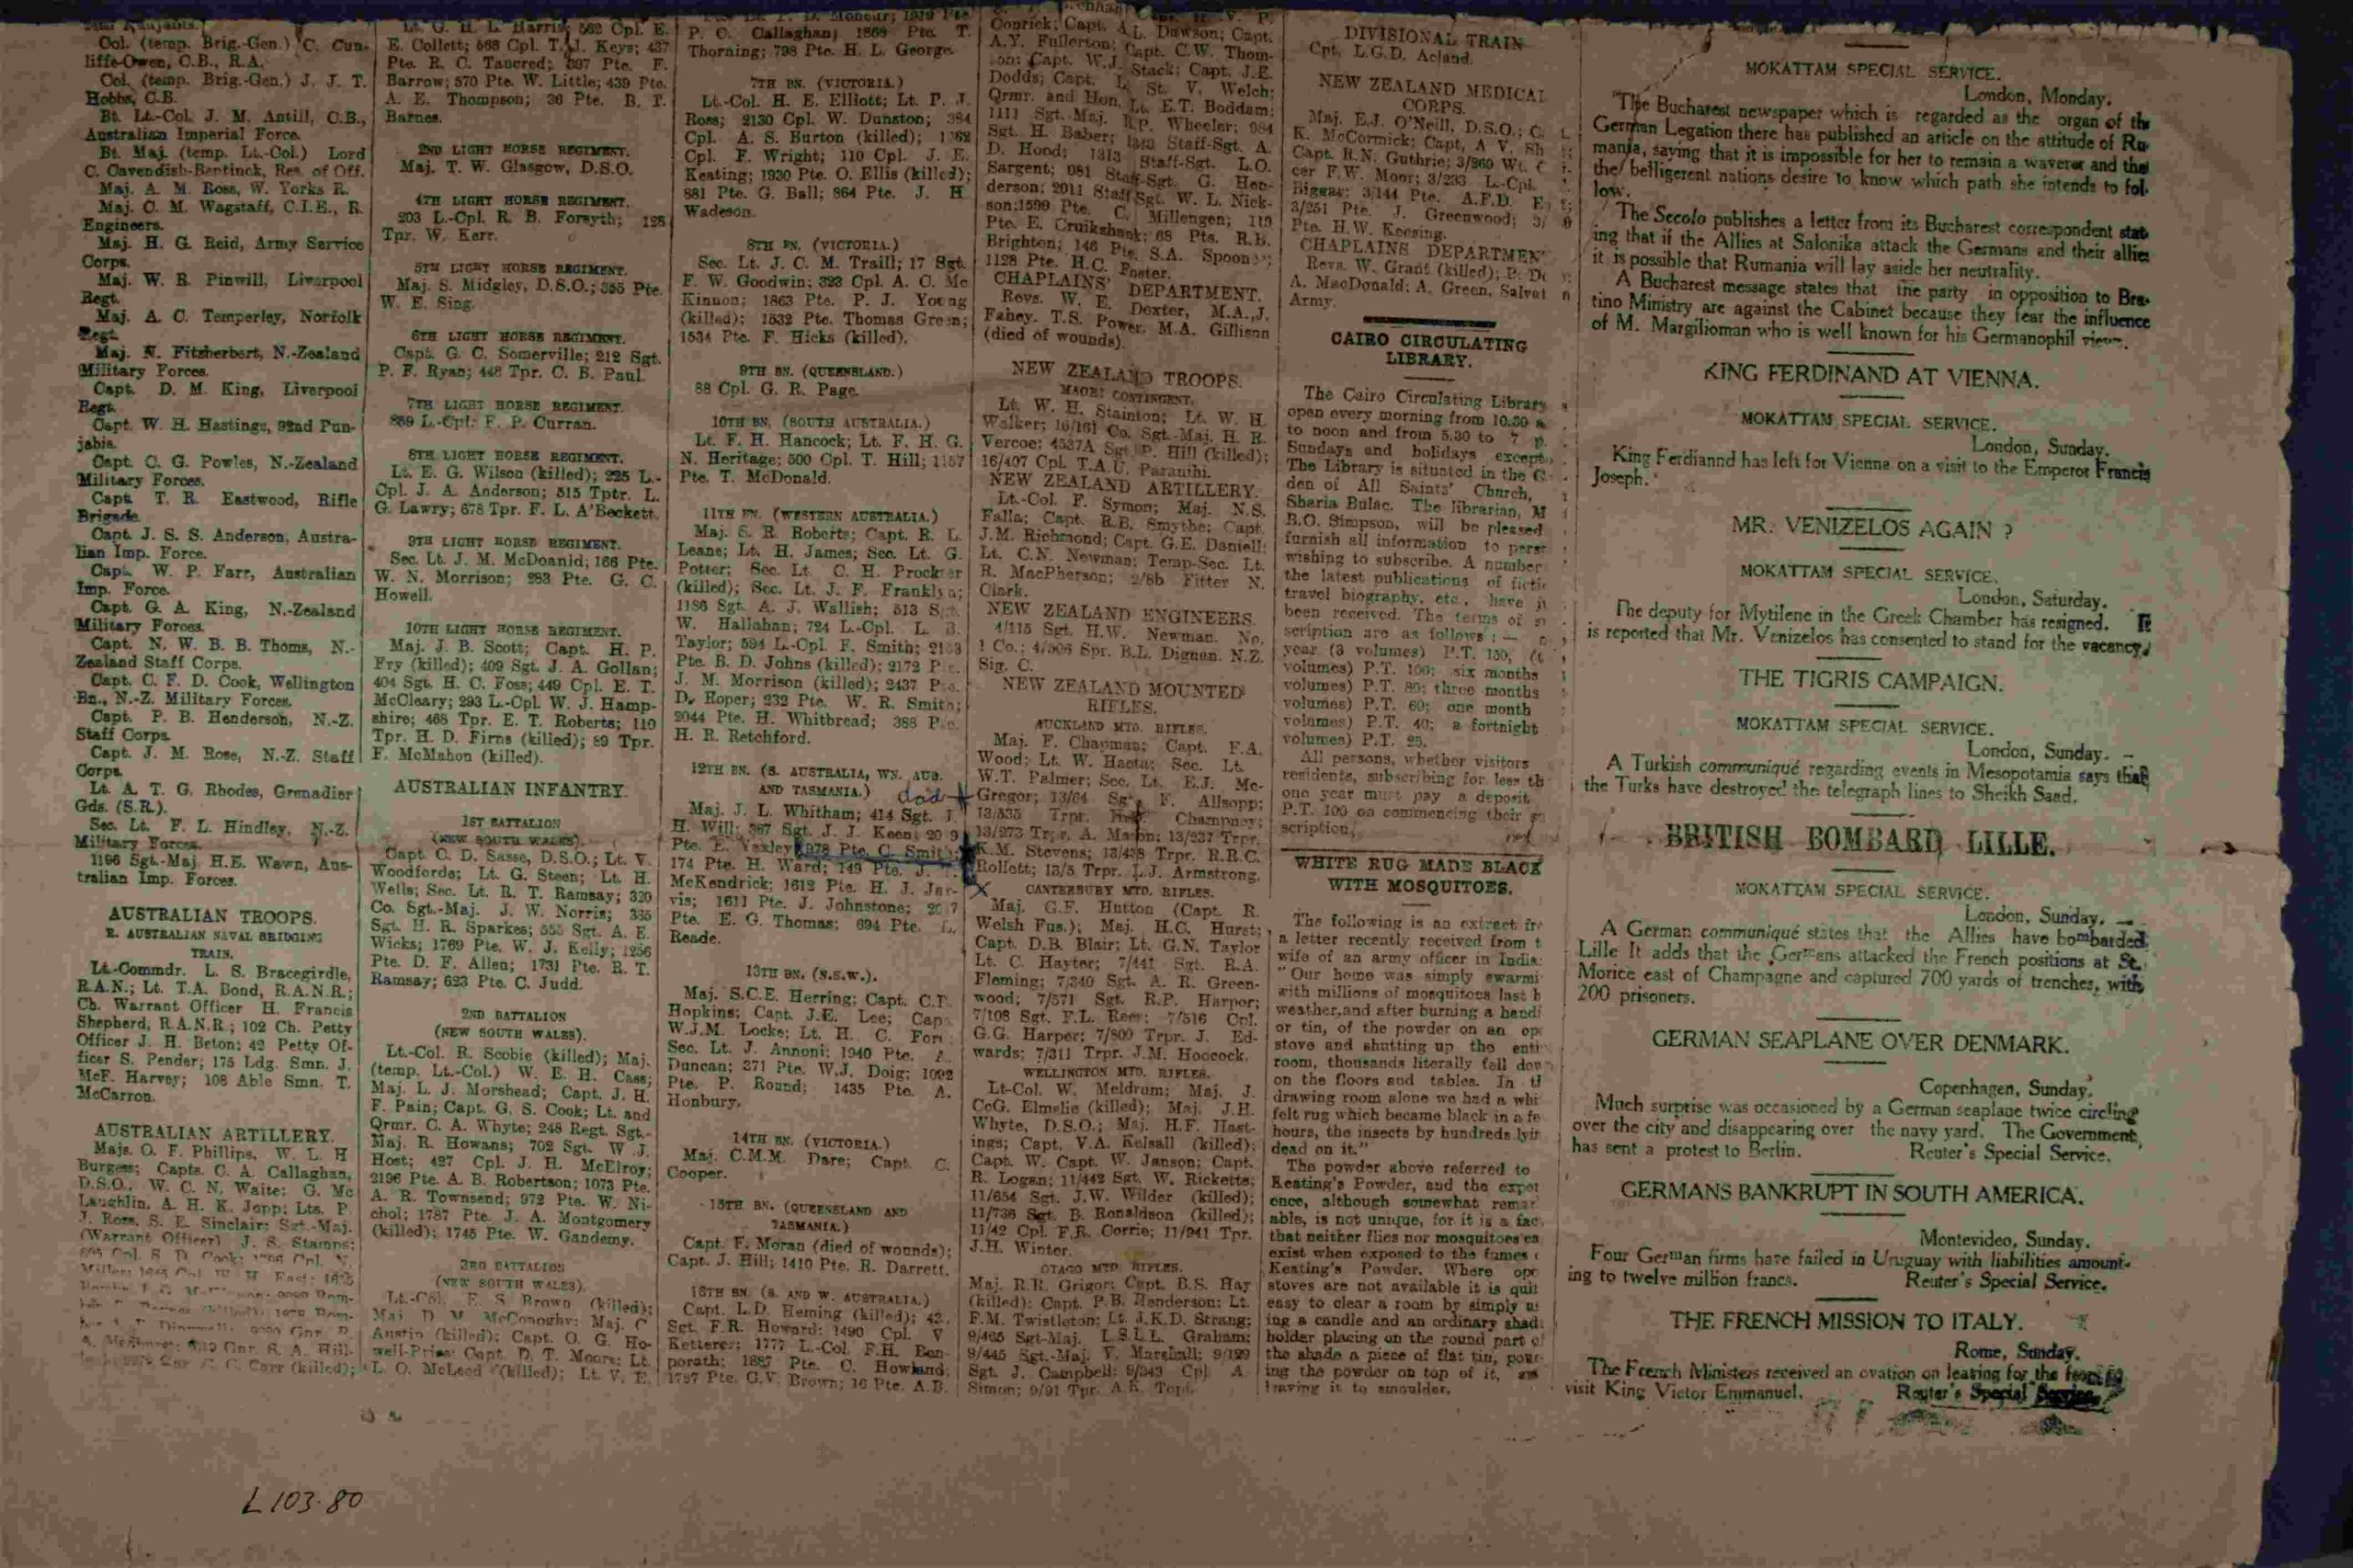 Col. (temp. Brig.-Gen.) C. Cun-
liffe-Owen, C.B., R.A.
Col. (temp. Brig.-Gen.) J. J. T.
Hobbs, C.B.
Bt. Lt.-Col. J. M. Antill, C.B.,
Australian Imperial Force.
Bt. Maj. (temp. Lt.-Col.) Lord
C. Cavendish-Bentinck, Res. of Off.
Maj. A. M. Ross, W. Yorks R.
Maj. C. M. Wagstaff, C.I.E., R.
Engineers.
Maj. H. G. Reid, Army Service
Corps.
Maj. W. R. Pinwill, Liverpool
Regt.
Maj. A. C. Temperley, Norfolk
Regt.
Maj. N. Fitzherbert, N.-Zealand
Military Forces.
Capt. D. M. King, Liverpool
Regt.
Capt. W. H. Hastings, 92nd Pun-
jabis.
Capt. C. G. Powles, N.-Zealand
Military Forces.
Capt. T. R. Eastwood, Rifle
Brigade.
Capt. J. S. S. Anderson, Austra-
lian Imp. Force.
Capt. W. P. Farr, Australian
Imp. Force.
Capt. G. A. King, N.-Zealand
Military Forces.
Capt. N. W. B. B. Thoms, N.-
Zealand Staff Corps.
Capt. C. F. D. Cook, Wellington
Bn., N.-Z. Military Forces.
Capt. P. B. Henderson, N.-Z.
Staff Corps.
Capt. J. M. Rose, N.-Z. Staff
Corps.
Lt. A. T. G. Rhodes, Grenadier
Gds. (S.R.).
Sec. Lt. F. L. Hindley, N.-Z.
Military Forces.
1196 Sgt.-Maj. H.E. Wawn, Aus-
tralian Imp. Forces.
AUSTRALIAN TROOPS.
R. AUSTRALIAN NAVAL BRIDGING
TRAIN.
Lt.-Commdr. L. S. Bracegirdle,
R.A.N.; Lt. T.A. Bond, R.A.N.R.;
Ch. Warrant Officer H. Francis
Shepherd, R.A.N.R.; 102 Ch. Petty
Officer J. H. Beton; 42 Petty Of-
ficer S. Pender; 175 Ldg. Smn. J.
McF. Harvey; 108 Able Smn. T.
McCarron.
AUSTRALIAN ARTILLERY.
Majs. O. F. Phillips, W. L. H
Burgess; Capts. C. A. Callaghan,
D.S.O., W. C. N. Waite; G. Mc
Laughlin, A. H. K. Jopp; Lts. P.
J. Ross, S. E. Sinclair; Sgt.-Maj.
(Warrant Officer) J. S. Stamps;
Carr (killed);
Lt. G. H. L. Harris; 562 Cpl. E.
E. Collett; 568 Cpl. T. J. Keys; 437
Pte. R. C. Tancred; 897 Pte. F.
Barrow; 570 Pte. W. Little; 439 Pte.
A. E. Thompson; 36 Pte. B. T.
Barnes.
2ND LIGHT HORSE REGIMENT.
Maj. T. W. Glasgow, D.S.O.
4TH LIGHT HORSE REGIMENT.
203 L.-Cpl. R. B. Forsyth; 128
Tpr. W. Kerr.
5TH LIGHT HORSE REGIMENT.
Maj. S. Midgley, D.S.O.; 355 Pte.
W. E. Sing.
6TH LIGHT HORSE REGIMENT.
Capt. G. C. Somerville; 212 Sgt.
P. F. Ryan; 448 Tpr. C. B. Paul.
7TH LIGHT HORSE REGIMENT.
859 L.-Cpl. F. P. Curran.
8TH LIGHT HORSE REGIMENT.
Lt. E. G. Wilson (killed); 225 L.-
Cpl. J. A. Anderson; 515 Tptr. L.
G. Lawry; 678 Tpr. F. L. A'Beckett.
9TH LIGHT HORSE REGIMENT.
Sec. Lt. J. M. McDoanid; 166 Pte.
W. N. Morrison; 283 Pte. G. C.
Howell.
10TH LIGHT HORSE REGIMENT.
Maj. J. B. Scott; Capt. H. P.
Fry (killed); 409 Sgt. J. A. Gollan;
404 Sgt. H. C. Foss; 449 Cpl. E. T.
McCleary; 293 L.-Cpl. W. J. Hamp-
shire; 468 Tpr. E. T. Roberts; 110
Tpr. H. D. Firns (killed); 89 Tpr.
F. McMahon (killed).
AUSTRALIAN INFANTRY.
1ST BATTALION
(NEW SOUTH WALES).
Capt. C. D. Sasse, D.S.O.; Lt. V.
Woodforde; Lt. G. Steen; Lt. H.
Wells; Sec. Lt. R. T. Ramsay; 320
Co. Sgt.-Maj. J. W. Norris; 385
Sgt. H. R. Sparkes; 555 Sgt. A. E.
Wicks; 1769 Pte. W. J. Kelly; 1256
Pte. D. F. Allen; 1731 Pte. R. T.
Ramsay; 623 Pte. C. Judd.
2ND BATTALION
(NEW SOUTH WALES).
Lt.-Col. R. Scobie (killed); Maj.
(temp. Lt.-Col.) W. E. H. Cass;
Maj. L. J. Morshead; Capt. J. H.
F. Pain; Capt. G. S. Cook; Lt. and
Qrmr. C. A. Whyte; 248 Regt. Sgt.-
Maj. R. Howans; 702 Sgt. W .J.
Host; 427 Cpl. J. H. McElroy;
2196 Pte. A. B. Robertson; 1073 Pte.
A. R. Townsend; 972 Pte. W. Ni-
chol; 1787 Pte. J. A. Montgomery
(killed); 1745 Pte. W. Gandemy.
3RD BATTALION
(NEW SOUTH WALES).
Lt.-Col. E. S. Brown (killed);
Maj. D. M. McConoghy; Maj. C
Austin (killed); Capt. O. G. Ho-
well-Price; Capt. D. T. Moore; Lt.
L. O. McLeod (killed); Lt. V. E.
P. C. Callaghan; 1868 Pte. T.
Thorning; 798 Pte. H. L. George.
7TH BN. (VICTORIA.)
Lt.-Col. H. E. Elliott; Lt. P. J.
Ross; 2130 Cpl. W. Dunston; 384
Cpl. A. S. Burton (killed); 1062
Cpl. F. Wright; 110 Cpl. J. E.
Keating; 1930 Pte. O. Ellis (killed);
881 Pte. G. Ball; 864 Pte. J. H
Wadeson.
8TH BN. (VICTORIA.)
Sec. Lt. J. C. M. Traill; 17 Sgt.
F. W. Goodwin; 323 Cpl. A. C. Mc
Kinnon; 1863 Pte. P. J. Young
(killed); 1532 Pte. Thomas Green;
1534 Pte. F. Hicks (killed).
9TH BN. (QUEENSLAND.)
88 Cpl. G. R. Page.
10TH BN. (SOUTH AUSTRALIA.)
Lt. F. H. Hancock; Lt. F. H. G.
N. Heritage; 500 Cpl. T. Hill; 1157
Pte. T. McDonald.
11TH BN. (WESTERN AUSTRALIA.)
Maj. S. R. Roberts; Capt. R. L.
Leane; Lt. H. James; Sec. Lt. G.
Potter; Sec. Lt. C. H. Procker
(killed); Sec. Lt. J. F. Franklyn;
1186 Sgt. A. J. Wallish; 513 Sgt.
W. Hallahan; 724 L.-Cpl. L. B.
Taylor; 594 L.-Cpl. F. Smith;
Pte. B. D. Johns (killed); 2172
J. M. Morrison (killed); 2437
D. Roper; 232 Pte. W. R. Smith;
2044 Pte. H. Whitbread; 388
H. R. Retchford.
12TH BN. (S. AUSTRALIA, WN. AUS.
AND TASMANIA.) dad
Maj. J. L. Whitham; 414 Sgt. J.
H. Will; 867 Sgt. J. J. Keen;
Pte. E. Yaxley; 978 Pte. C. Smith;
174 Pte. H. Ward; 149 Pte. J.
McKendrick; 1612 Pte. H. J. Jar-
vis; 1611 Pte. J. Johnstone;
Pte. E. G. Thomas; 694 Pte. L.
Reade.
13TH BN. (N.S.W.).
Maj. S.C.E. Herring; Capt. C.F.
Hopkins; Capt. J.E. Lee;
W.J.M. Locke; Lt. H. C.
Sec. Lt. J. Annoni; 1940 Pte.
Duncan; 271 Pte. W.J. Doig; 1092
Pte. P. Round; 1435 Pte. A.
Honbury.
14TH BN. (VICTORIA.)
Maj. C.M.M. Dare; Capt. C.
Cooper.
15TH BN. (QUEENSLAND AND
TASMANIA.)
Capt. F. Moran (died of wounds);
Capt. J. Hill; 1410 Pte. R. Darrett.
16TH BN. (S. AND W. AUSTRALIA.)
Capt. L.D. Heming (killed);
Sgt. F.R. Howard; 1490 Cpl. V
Ketterer; 1777 L.-Col. F.H. Bon-
porath; 1887 Pte. C. Howland;
1797 Pte. G.V. Brown; 16 Pte. A.B.
Conrick; Capt. A.L. Dawson; Capt.
A.Y. Fullerton; Capt. C.W. Thom-
son; Capt. W.J. Stack; Capt. J.E.
Dodds; Capt. L. St. V. Welch;
Qrmr. and Hon. Lt. E.T. Boddam;
1111 Sgt.-Maj. R.P. Wheeler; 984
Sgt. H. Baber; 1343 Staff-Sgt. A.
D. Hood; 1313 Staff-Sgt. L.O.
Sargent; 981 Staff-Sgt. G. Hen-
derson; 2011 Staff Sgt. W. L. Nick-
son; 1599 Pte. C. Millengen; 119
Pte. E. Cruikshank; 68 Pts. R.B.
Brighton; 146 Pte. S.A. Spooner;
1128 Pte. H.C. Foster.
CHAPLAINS' DEPARTMENT.
Revs. W. E. Dexter, M.A., J.
Fahey, T.S. Power, M.A. Gillison
(died of wounds).
NEW ZEALAND TROOPS.
MAORI CONTINGENT.
Lt. W. H. Stainton; Lt. W. H.
Walker; 16/161 Co. Sgt.-Maj. H. R.
Vercoe; 4537A Sgt. P. Hill (killed);
16/407 Cpl. T.A.U. Paranihi.
NEW ZEALAND ARTILLERY.
Lt.-Col. F. Symon; Maj. N.S.
Falla; Capt. R.B. Smythe; Capt.
J.M. Richmond; Capt. G.E. Daniell;
Lt. C.N. Newman; Temp-Sec. Lt.
R. MacPherson; 2/8b Fitter N.
Clark.
NEW ZEALAND ENGINEERS.
4/115 Sgt. H.W. Newman. No.
1 Co.; 4/506 Spr. B.L. Dignan. N.Z.
Sig. C.
NEW ZEALAND MOUNTED
RIFLES.
AUCKLAND MTD. RIFLES.
Maj. F. Chapman; Capt. F.A.
Wood; Lt. W. Haeta; Sec. Lt.
W.T. Palmer; Sec. Lt. E.J. Mc-
Gregor; 13/64 Sgt. F. Allsopp;
13/535 Trpr. Champney;
13/273 Trpr. A. Mason; 13/237 Trpr.
K.M. Stevens; 13/438 Trpr. R.R.C.
Rollett; 13/5 Trpr. L.J. Armstrong.
CANTERBURY MTD. RIFLES.
Maj. G.F. Hutton (Capt. R.
Welsh Fus.); Maj. H.C. Hurst;
Capt. D.B. Blair; Lt. G.N. Taylor
Lt. C. Hayter; 7/441 Sgt. R.A.
Fleming; 7/340 Sgt. A. R. Green-
wood; 7/571 Sgt. R.P. Harper;
7/108 Sgt. F.L. Rees; 7/516 Cpl.
G.G. Harper; 7/800 Trpr. J. Ed-
wards; 7/311 Trpr. J.M. Hodcock.
WELLINGTON MTD. RIFLES.
Lt-Col. W. Meldrum; Maj. J.
CcG. Elmslie (killed); Maj. J.H.
Whyte, D.S.O.; Maj. H.F. Hast-
ings; Capt. V.A. Kelsall (killed);
Capt. W. Capt. W. Janson; Capt.
R. Logan; 11/442 Sgt. W. Ricketts;
11/654 Sgt. J.W. Wilder (killed);
11/736 Sgt. B. Ronaldson (killed);
11/42 Cpl. F.R. Corrie; 11/941 Tpr.
J.H. Winter.
OTAGO MTD. RIFLES.
Maj. R.R. Grigor; Capt. B.S. Hay
(killed); Capt. P.B. Henderson; Lt.
F.M. Twistleton; Lt. J.K.D. Strang;
9/465 Sgt-Maj. L.S.L.L. Graham;
9/445 Sgt.-Maj. V. Marshall; 9/129
Sgt. J. Campbell; 9/343 Cpl. A
Simon; 9/91 Tpr. A.R.
DIVISIONAL TRAIN
Cpt. L.G.D. Acland.
NEW ZEALAND MEDICAL
CORPS.
Maj. E.J. O'Neill, D.S.O.; C.
K. McCormick; Capt, A V. Sh
Capt. R.N. Guthrie; 3/260 Wt.
cer F.W. Moor; 3/233 L.-Cpl.
Biggar; 3/144 Pte. A.F.D.
3/251 Pte. J. Greenwood; 3/
Pte. H.W. Keesing.
CHAPLAINS DEPARTMEN
Revs. W. Grant (killed);
A. MacDonald; A. Green, Salvat
Army.
CAIRO CIRCULATING
LIBRARY.
The Cairo Circulating Library
open every morning from 10.30
to noon and from 5.30 to 7 p.
Sundays and holidays except
The Library is situated in the G
den of All Saints' Church,
Sharia Bulac. The librarian, M
B.G. Simpson, will be pleased
furnish all information to pers
wishing to subscribe. A number
the latest publications of fictio
travel biography, etc., have
been received. The terms of
scription are as follows: —
year (3 volumes) P.T. 150,
volumes) P.T. 100; six months
volumes) P.T. 80; three months
volumes) P.T. 60; one month
volumes) P.T. 40; a fortnight
volumes) P.T. 25.
All persons, whether visitors
residents, subscribing for less th
one year must pay a deposit
P.T. 100 on commencing their
scription.
WHITE RUG MADE BLACK
WITH MOSQUITOES.
The following is an extract fr
a letter recently received from t
wife of an army officer in India:
"Our home was simply swarmi
with millions of mosquitoes last h
weather, and after burning a handf
or tin, of the powder on an op
stove and shutting up the enti
room, thousands literally fell dow
on the floors and tables. In th
drawing room alone we had a whi
felt rug which became black in a fe
hours, the insects by hundreds lyin
dead on it."
The powder above referred to
Keating's Powder, and the exper
ence, although somewhat remar
able, is not unique, for it is a fac
that neither flies nor mosquitoes ca
exist when exposed to the fumes
Keating's Powder. Where ope
stoves are not available it is quit
easy to clear a room by simply u
ing a candle and an ordinary shad
holder placing on the round part of
the shade a piece of flat tin, pour-
ing the powder on top of it, and
leaving it to smoulder.
MOKATTAM SPECIAL SERVICE.
London, Monday.
The Bucharest newspaper which is regarded as the organ of the
German Legation there has published an article on the attitude of Ru-
mania, saying that it is impossible for her to remain a waverer and that
the belligerent nations desire to know which path she intends to fol-
low.
The Secolo publishes a letter from its Bucharest correspondent stat-
ing that if the Allies at Salonika attack the Germans and their allies
it is possible that Rumania will lay aside her neutrality.
A Bucharest message states that the party in opposition to Bra-
tino Ministry are against the Cabinet because they fear the influence
of M. Margilioman who is well known for his Germanophil views.
KING FERDINAND AT VIENNA.
MOKATTAM SPECIAL SERVICE.
London, Sunday.
King Ferdiannd has left for Vienna on a visit to the Emperor Francis
Joseph.
MR. VENIZELOS AGAIN ?
MOKATTAM SPECIAL SERVICE.
London, Saturday.
The deputy for Mytilene in the Greek Chamber has resigned. It
is reported that Mr. Venizelos has consented to stand for the vacancy.
THE TIGRIS CAMPAIGN.
MOKATTAM SPECIAL SERVICE.
London, Sunday.
A Turkish communiqué regarding events in Mesopotamia says that
the Turks have destroyed the telegraph lines to Sheikh Saad.
BRITISH BOMBARD LILLE.
MOKATTAM SPECIAL SERVICE.
London, Sunday.
A German communiqué states that the Allies have bombarded
Lille It adds that the Germans attacked the French positions at St.
Morice east of Champagne and captured 700 yards of trenches, with
200 prisoners.
GERMAN SEAPLANE OVER DENMARK.
Copenhagen, Sunday.
Much surprise was occasioned by a German seaplane twice circling
over the city and disappearing over the navy yard. The Government
has sent a protest to Berlin. Reuter's Special Service.
GERMANS BANKRUPT IN SOUTH AMERICA.
Montevideo, Sunday.
Four German firms have failed in Uruguay with liabilities amount-
ing to twelve million francs. Reuter's Special Service.
THE FRENCH MISSION TO ITALY.
Rome, Sunday.
The French Ministers received an ovation on leaving for the front to
visit King Victor Emmanuel. Reuter's Special Service.
L103.80